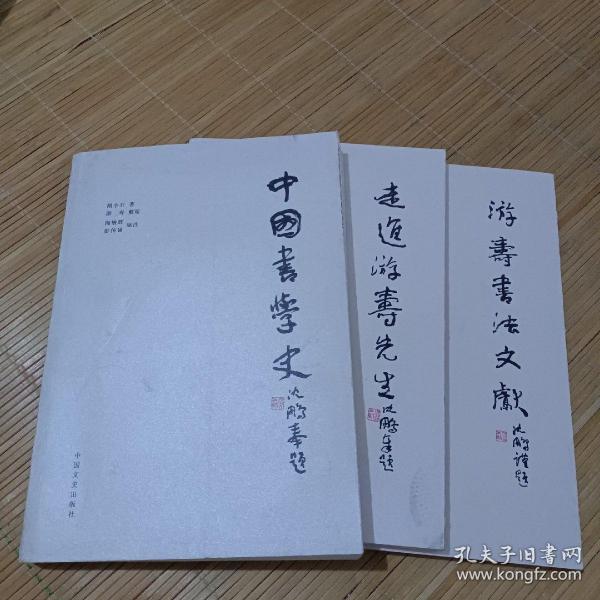 中國書學史
沈鵬奉題
胡小石 著
游 寿 整理
中国文史出版社
走進游壽先生
沈鵬奉題
游壽書法文獻
沈鵬謹題
孔夫子旧书网
www.kongfz.com